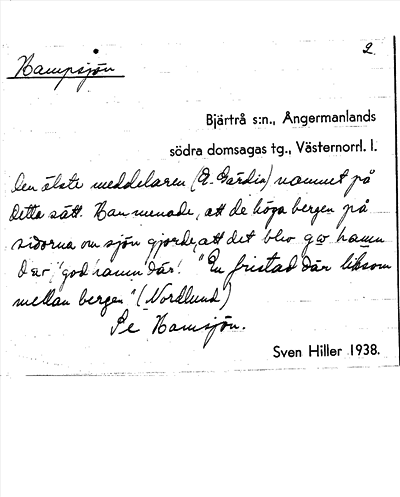 2.
Hampsjön
Bjärtrå s:n., Ångermanlands
södra domsagas tg., Västernorrl. l.
den älste meddelaren (E. Gärdin) namnet på
detta sätt. Han menade, att de höga bergen på
sidorna om sjön gjorde, att det blev hamn
där, "god hamn där". "En fristad där liksom
mellan bergen" (Nordlund)
Se Hamsjön.
Sven Hiller 1938.